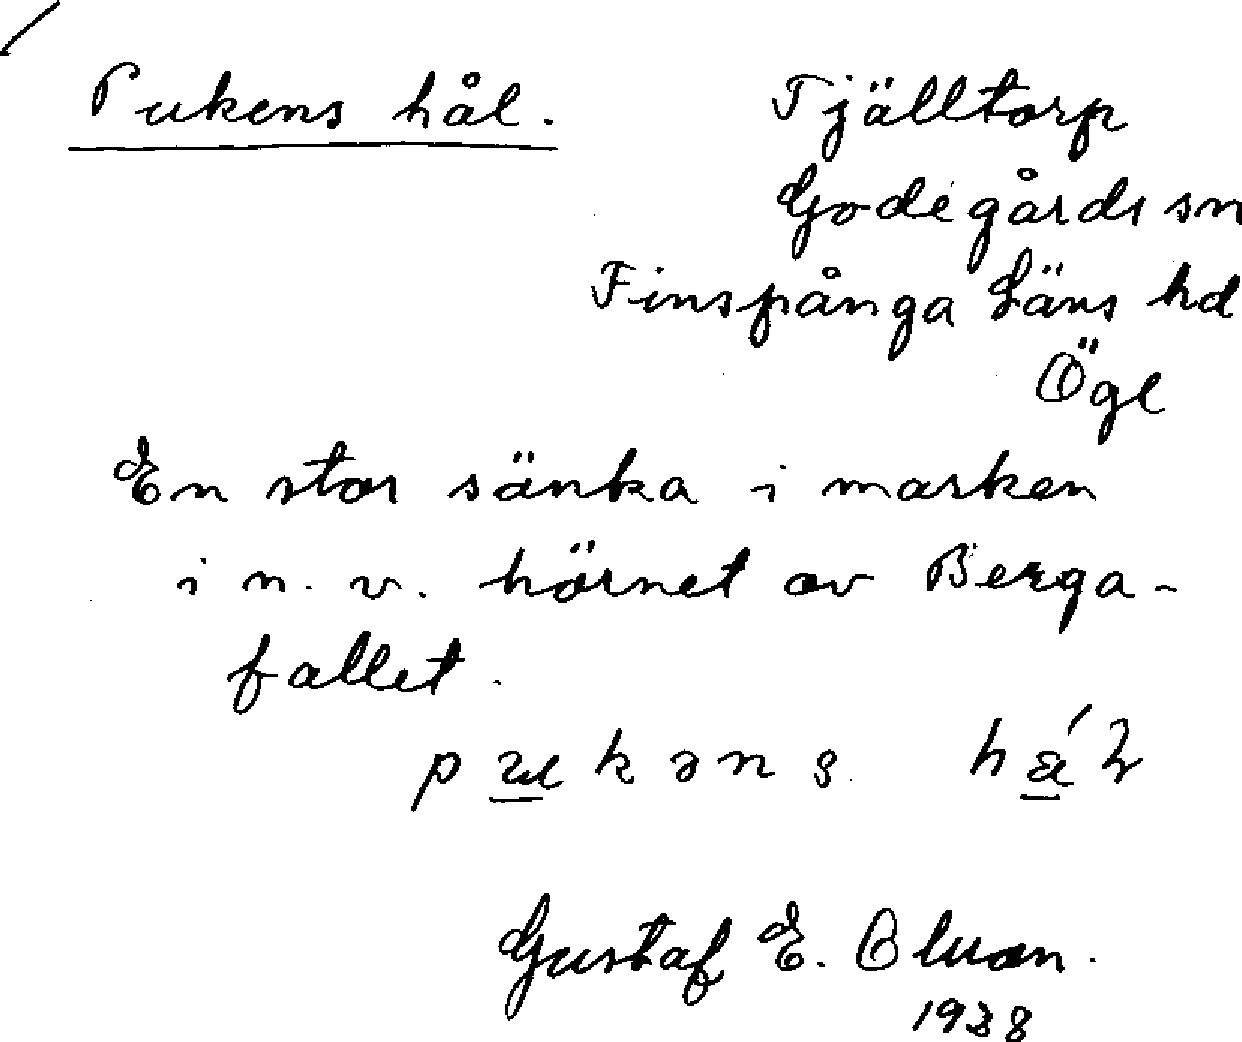 Pukens hål.
Tjälltorp
Godegårds sn
Finspånga Läns hd
Ögl
En stor sänka i marken
i n. v. hörnet av Berga-
fallet.
Gustaf E. Olson.
1938